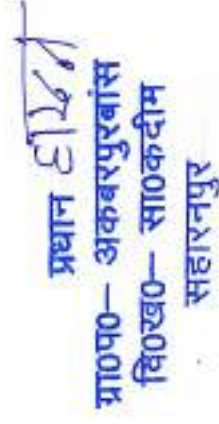 प्रधान
ग्रा०प०— अकबरपुरबांस
वि०ख०— सा०कदीम
सहारनपुर